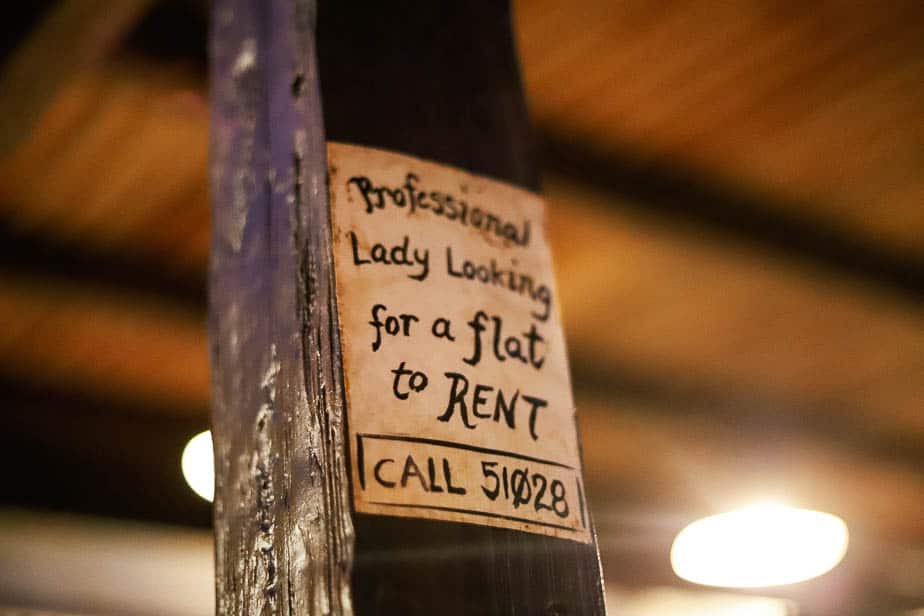 Professional
Lady Looking
for a flat
to RENT
CALL 51028